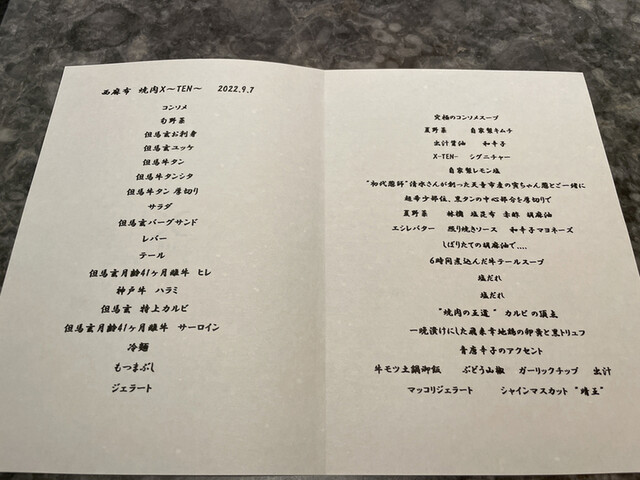 西麻布 焼肉X〜TEN〜 2022.9.7
コンソメ
旬野菜
但馬玄お刺身
但馬玄ユッケ
但馬牛タン
但馬牛タンシタ
但馬牛タン 厚切り
サラダ
但馬玄バーグサンド
レバー
テール
但馬玄月齢41ヶ月雌牛 ヒレ
神戸牛 ハラミ
但馬玄 特上カルビ
但馬玄月齢41ヶ月雌牛 サーロイン
冷麺
もつまぶし
ジェラート
究極のコンソメスープ
夏野菜 自家製キムチ
出汁醤油 和辛子
X-TEN- シグニチャー
自家製レモン塩
"初代葱師"清水さんが創った天竜市産の寅ちゃん葱とご一緒に
超希少部位、黒タンの中心部分を厚切りで
夏野菜 林檎 塩昆布 赤酢 胡麻油
エシレバター 照り焼きソース 和辛子マヨネーズ
しぼりたての胡麻油で....
6時間煮込んだ牛テールスープ
塩だれ
塩だれ
"焼肉の王道" カルビの頂点
一晩漬けにした飛来幸地鶏の卵黄と黒トリュフ
青唐辛子のアクセント
牛モツ土鍋御飯 ぶどう山椒 ガーリックチップ 出汁
マッコリジェラート シャインマスカット "晴王"